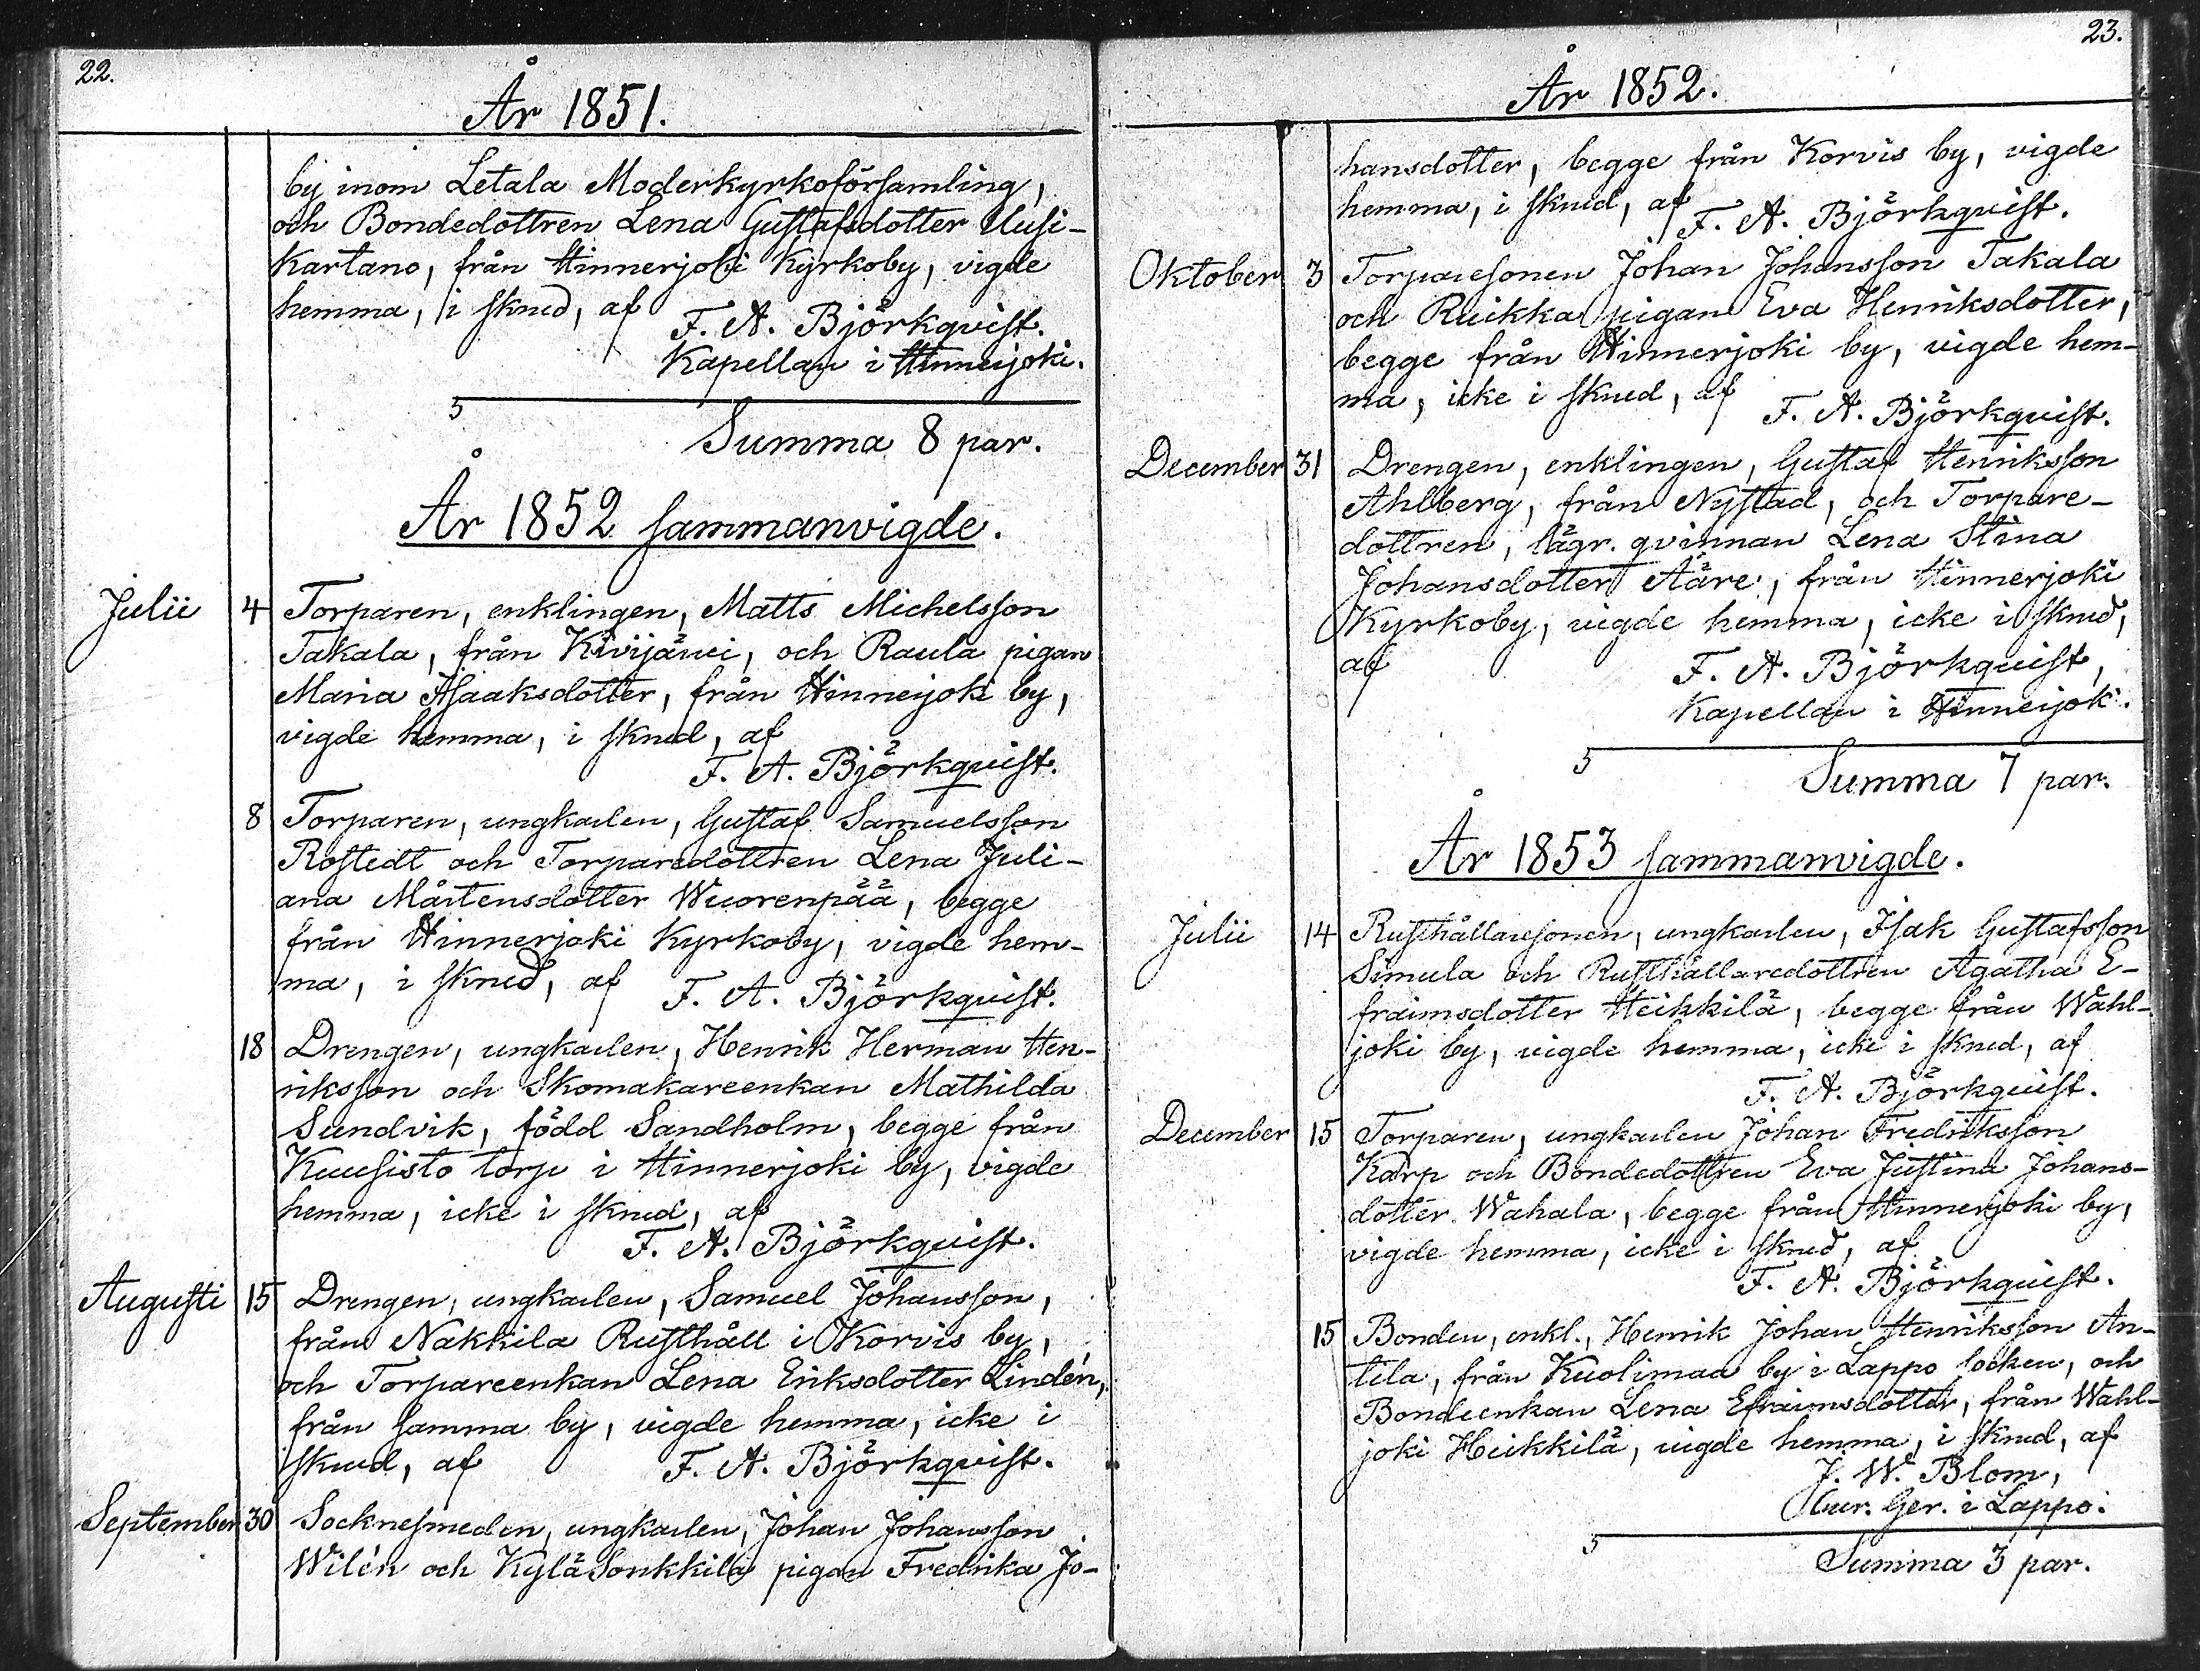 22.
År 1851.
by inom Letala Moderkyrkoförsamling,
och Bondedottren Lena Gustafsdotter Uusi-
Kartano, från Hinnerjoki Kyrkoby, vigde
hemma, i skrud, af F. A. Björkqvist.
Kapellan i Hinnerjoki.
Summa 8 par.
År 1852 sammanvigde.
Julii 4 Torparen, enklingen, Matts Michelsson
Takala, från Kivijärvi, och Raula pigan
Maria Isaaksdotter, från Hinnerjoki by,
vigde hemma, i skrud, af
F. A. Björkqvist.
8 Torparen, ungkarlen, Gustaf Samuelsson
Rostedt och Torparedottren Lena Juli-
ana Mårtensdotter Wuorenpää, begge
från Hinnerjoki Kyrkoby, vigde hem-
ma, i skrud, af F. A. Björkqvist.
18 Drengen, ungkarlen, Henrik Herman Hen-
riksson och Skomakareenkan Mathilda
Sundvik, född Sandholm, begge från
Kuusisto torp i Hinnerjoki by, vigde
hemma, icke i skrud, af
F. A. Björkqvist.
Augusti 15 Drengen, ungkarlen, Samuel Johansson,
från Nakkila Rusthåll i Korvis by,
och Torpareenkan Lena Eriksdotter Lindén,
från samma by, vigde hemma, icke i
skrud, af F. A. Björkqvist.
September 30 Socknesmeden, ungkarlen, Johan Johansson
Wilén och KyläSonkkila pigan Fredrika Jo-
23.
År 1852.
hansdotter, begge från Korvis by, vigde
hemma, i skrud, af F. A. Björkqvist.
Oktober 3 Torparesonen Johan Johansson Takala
och Ruikka pigan Eva Henriksdotter,
begge från Hinnerjoki by, vigde hem-
ma, icke i skrud, af F. A. Björkqvist.
December 31 Drengen, enklingen, Gustaf Henriksson
Ahlberg, från Nystad, och Torpare-
dottren, lägr. qvinnan Lena Stina
Johansdotter Ääre, från Hinnerjoki
Kyrkoby, vigde hemma, icke i skrud,
af F. A. Björkqvist,
Kapellan i Hinnerjoki.
Summa 7 par.
År 1853 sammanvigde.
Julii 14 Rusthållaresonen, ungkarlen, Isak Gustafsson
Simula och Rusthållaredottren Agatha E-
fraimsdotter Heikkilä, begge från Wahl-
joki by, vigde hemma, icke i skrud, af
F. A. Björkqvist.
December 15 Torparen, ungkarlen Johan Fredriksson
Karp och Bondedottren Eva Justina Johans-
dotter Wahala, begge från Hinnerjoki by,
vigde hemma, icke i skrud, af
F. A. Björkqvist.
15 Bonden, enkl., Henrik Johan Henriksson An-
tila, från Kuolimaa by i Lappo socken, och
Bondeenkan Lena Efraimsdotter, från Wahl-
joki Heikkilä, vigde hemma, i skrud, af
J. W. Blom,
Cur. Ger. i Lappo.
Summa 3 par.